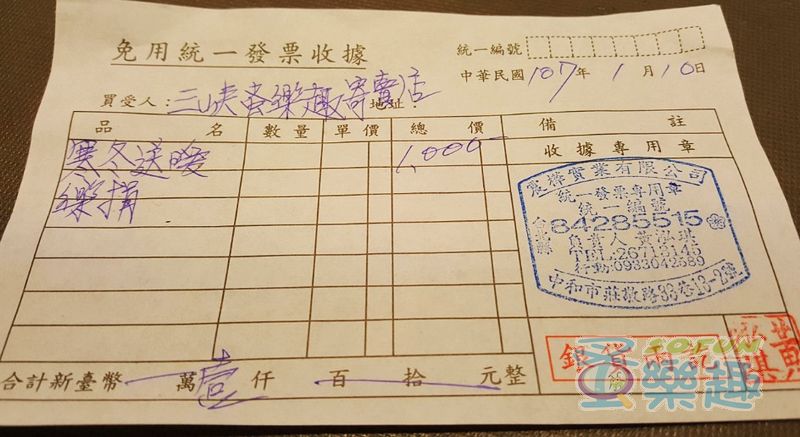 免用統一發票收據
統一編號
中華民國107年1月10日
買受人：三峽蚤樂趣寄賣店 地址
品名 數量 單價 總價 備註
寒冬送暖 1,000- 收據專用章
樂捐
憲樺實業有限公司
統一發票專用章
統一編號
84285515
負責人 黃
TEL:26713146
行動:0933042589
中和市莊敬路83巷13-2號
銀貨兩訖
FUN
蚤樂趣
合計新臺幣 萬壹仟 百 拾 元整